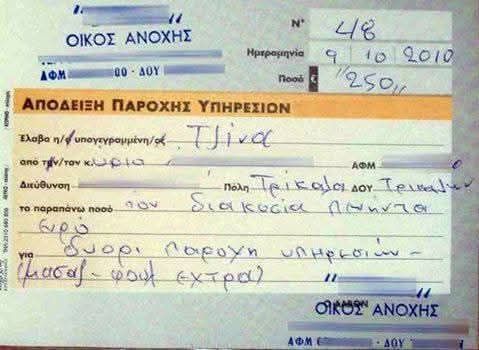 "
ΟΙΚΟΣ ΑΝΟΧΗΣ
ΑΦΜ 00 - ΔΟΥ
Ν° 48
Ημερομηνία 9 10 2010
Ποσό € "250"
ΑΠΟΔΕΙΞΗ ΠΑΡΟΧΗΣ ΥΠΗΡΕΣΙΩΝ
Έλαβα η/ο υπογεγραμμένη/ος Τζίνα
από την/τον κύριο ΑΦΜ 0
Διεύθυνση Πόλη Τρίκαλα ΔΟΥ Τρικάλων
το παραπάνω ποσό των διακόσια πενήντα
ευρώ
για παροχή υπηρεσιών -
(μασάζ - φουλ έχτρα)
Ο ΛΑΒΩΝ
" "
ΟΙΚΟΣ ΑΝΟΧΗΣ
ΑΦΜ ΔΟΥ